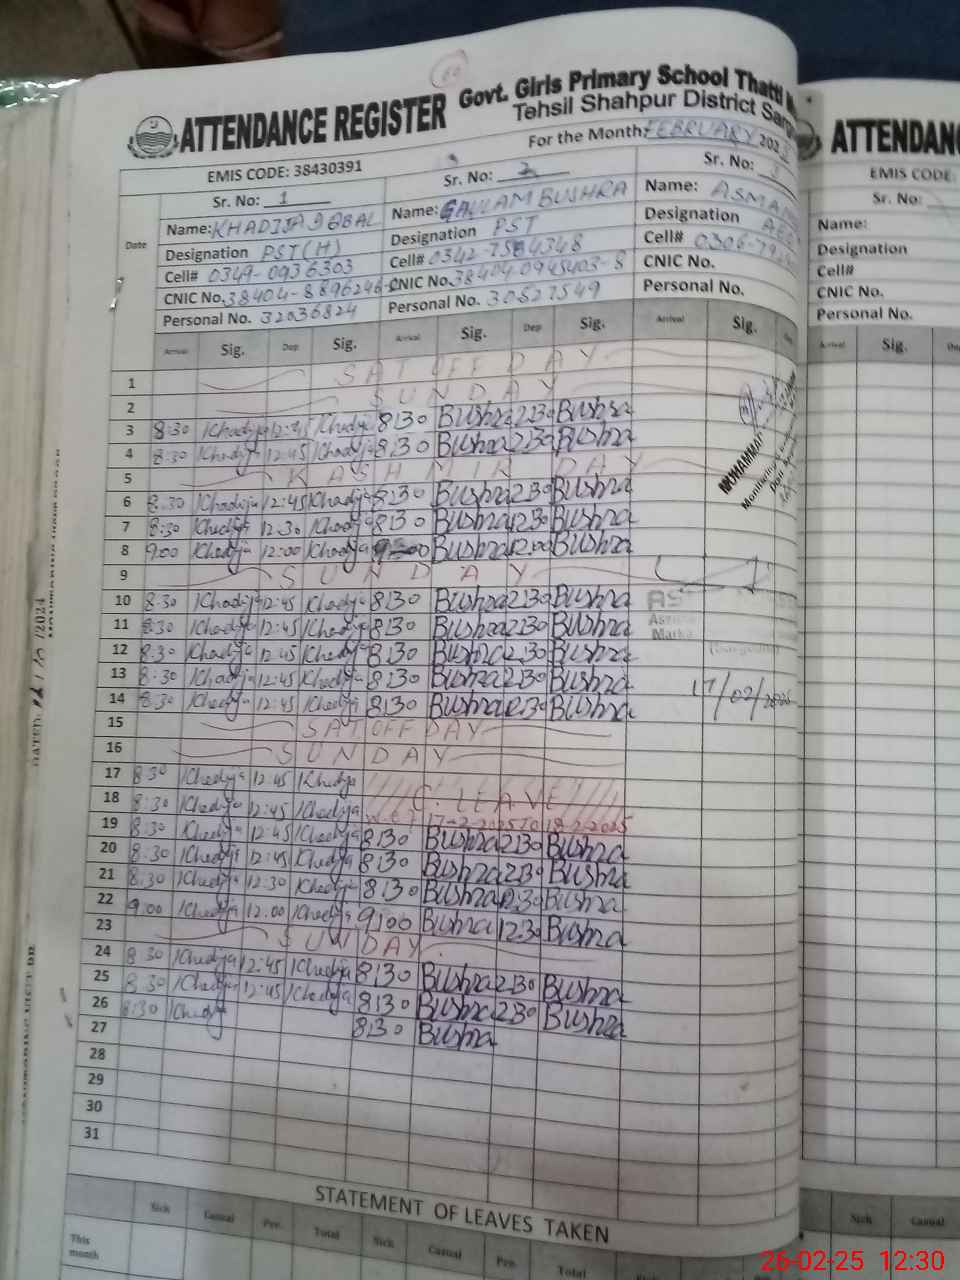 ATTENDANCE REGISTER
Govt. Girls Primary School Thatti
Tehsil Shahpur District
For the Month: FEBRUARY 202
EMIS CODE: 38430391
Date
Sr. No: 1
Name: KHADIJA IQBAL
Designation PST(H)
Cell# 0349-0936303
CNIC No. 38404-8896246-
Personal No. 32036824
Sr. No: 2
Name: GAULAM BUSHRA
Designation PST
Cell# 0342-7584348
CNIC No. 38404-0945403-8
Personal No. 30527549
Sr. No:
Name: ASMA
Designation
Cell# 0306-79
CNIC No.
Personal No.
Arrival Sig. Dep. Sig. Arrival Sig. Dep Sig. Arrival Sig.
1 SAT OFF DAY
2 SUNDAY
3 8:30 Khadija 12:45 Khadija 8:30 Bushra 12:30 Bushra
4 8:30 Khadija 12:45 Khadija 8:30 Bushra 12:30 Bushra
5 KASHMIR DAY
6 8:30 Khadija 12:45 Khadija 8:30 Bushra 12:30 Bushra
7 8:30 Khadija 12:30 Khadija 8:30 Bushra 12:30 Bushra
8 9:00 Khadija 12:00 Khadija Bushra 12:00 Bushra
9 SUNDAY
10 8:30 Khadija 12:45 Khadija 8:30 Bushra 12:30 Bushra
11 8:30 Khadija 12:45 Khadija 8:30 Bushra 12:30 Bushra
12 8:30 Khadija 12:45 Khadija 8:30 Bushra 12:30 Bushra
13 8:30 Khadija 12:45 Khadija 8:30 Bushra 12:30 Bushra
14 8:30 Khadija 12:45 Khadija 8:30 Bushra 12:30 Bushra
17/02/2025
15 SAT OFF DAY
16 SUNDAY
17 8:30 Khadija 12:45 Khadija
18 8:30 Khadija 12:45 Khadija
C. LEAVE
w.e.f 17-2-2025 TO 18-2-2025
19 8:30 Khadija 12:45 Khadija 8:30 Bushra 12:30 Bushra
20 8:30 Khadija 12:45 Khadija 8:30 Bushra 12:30 Bushra
21 8:30 Khadija 12:30 Khadija 8:30 Bushra 12:30 Bushra
22 9:00 Khadija 12:00 Khadija 9:00 Bushra 12:30 Bushra
23 SUNDAY
24 8:30 Khadija 12:45 Khadija 8:30 Bushra 12:30 Bushra
25 8:30 Khadija 12:45 Khadija 8:30 Bushra 12:30 Bushra
26 8:30 Khadija 8:30 Bushra
27
28
29
30
31
STATEMENT OF LEAVES TAKEN
Sick Casual Total Sick Casual Total
This month
MUHAMMAD
Monitoring
ATTENDANCE
EMIS CODE:
Sr. No:
Name:
Designation
Cell#
CNIC No.
Personal No.
Arrival Sig.
Sick Casual
26-02-25 12:30